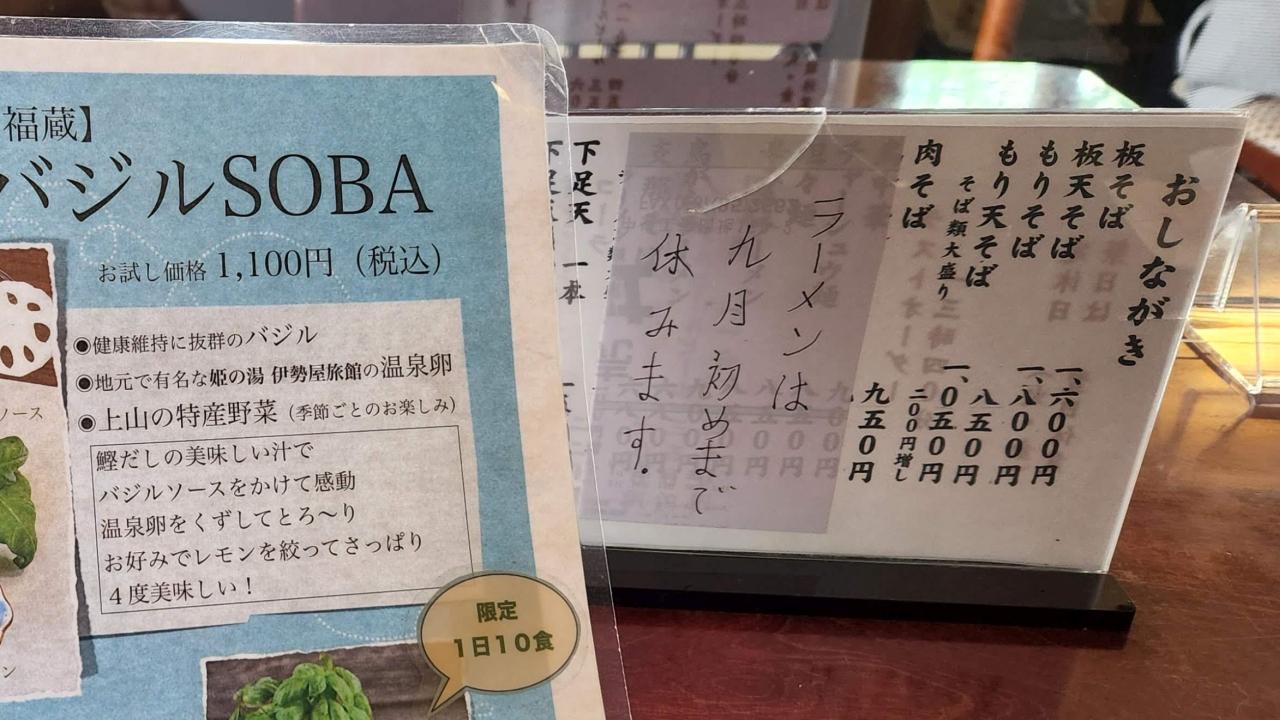 福蔵】
バジルSOBA
お試し価格 1,100円（税込）
◉健康維持に抜群のバジル
◉地元で有名な姫の湯 伊勢屋旅館の温泉卵
◉上山の特産野菜（季節ごとのお楽しみ）
鰹だしの美味しい汁で
バジルソースをかけて感動
温泉卵をくずしてとろ〜り
お好みでレモンを絞ってさっぱり
４度美味しい！
限定
1日10食
ソース
ン
おしながき
板そば 一、六００円
板天そば 一、八００円
もりそば 八五０円
もり天そば 一、０五０円
そば類大盛り 二００円増し
肉そば 九五０円
ラーメンは
九月初めまで
休みます.
下足天
一本